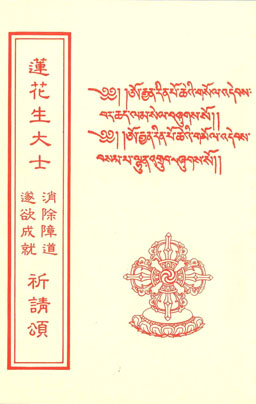 蓮花生大士
消除障道
遂欲成就
祈請頌
༄༅། །ཨོ་རྒྱན་རིན་པོ་ཆེའི་གསོལ་འདེབས་
བར་ཆད་ལམ་སེལ་བཞུགས་སོ།།
༄༅། །ཨོ་རྒྱན་རིན་པོ་ཆེའི་གསོལ་འདེབས་
བསམ་པ་ལྷུན་འགྲུབ་བཞུགས་སོ།།